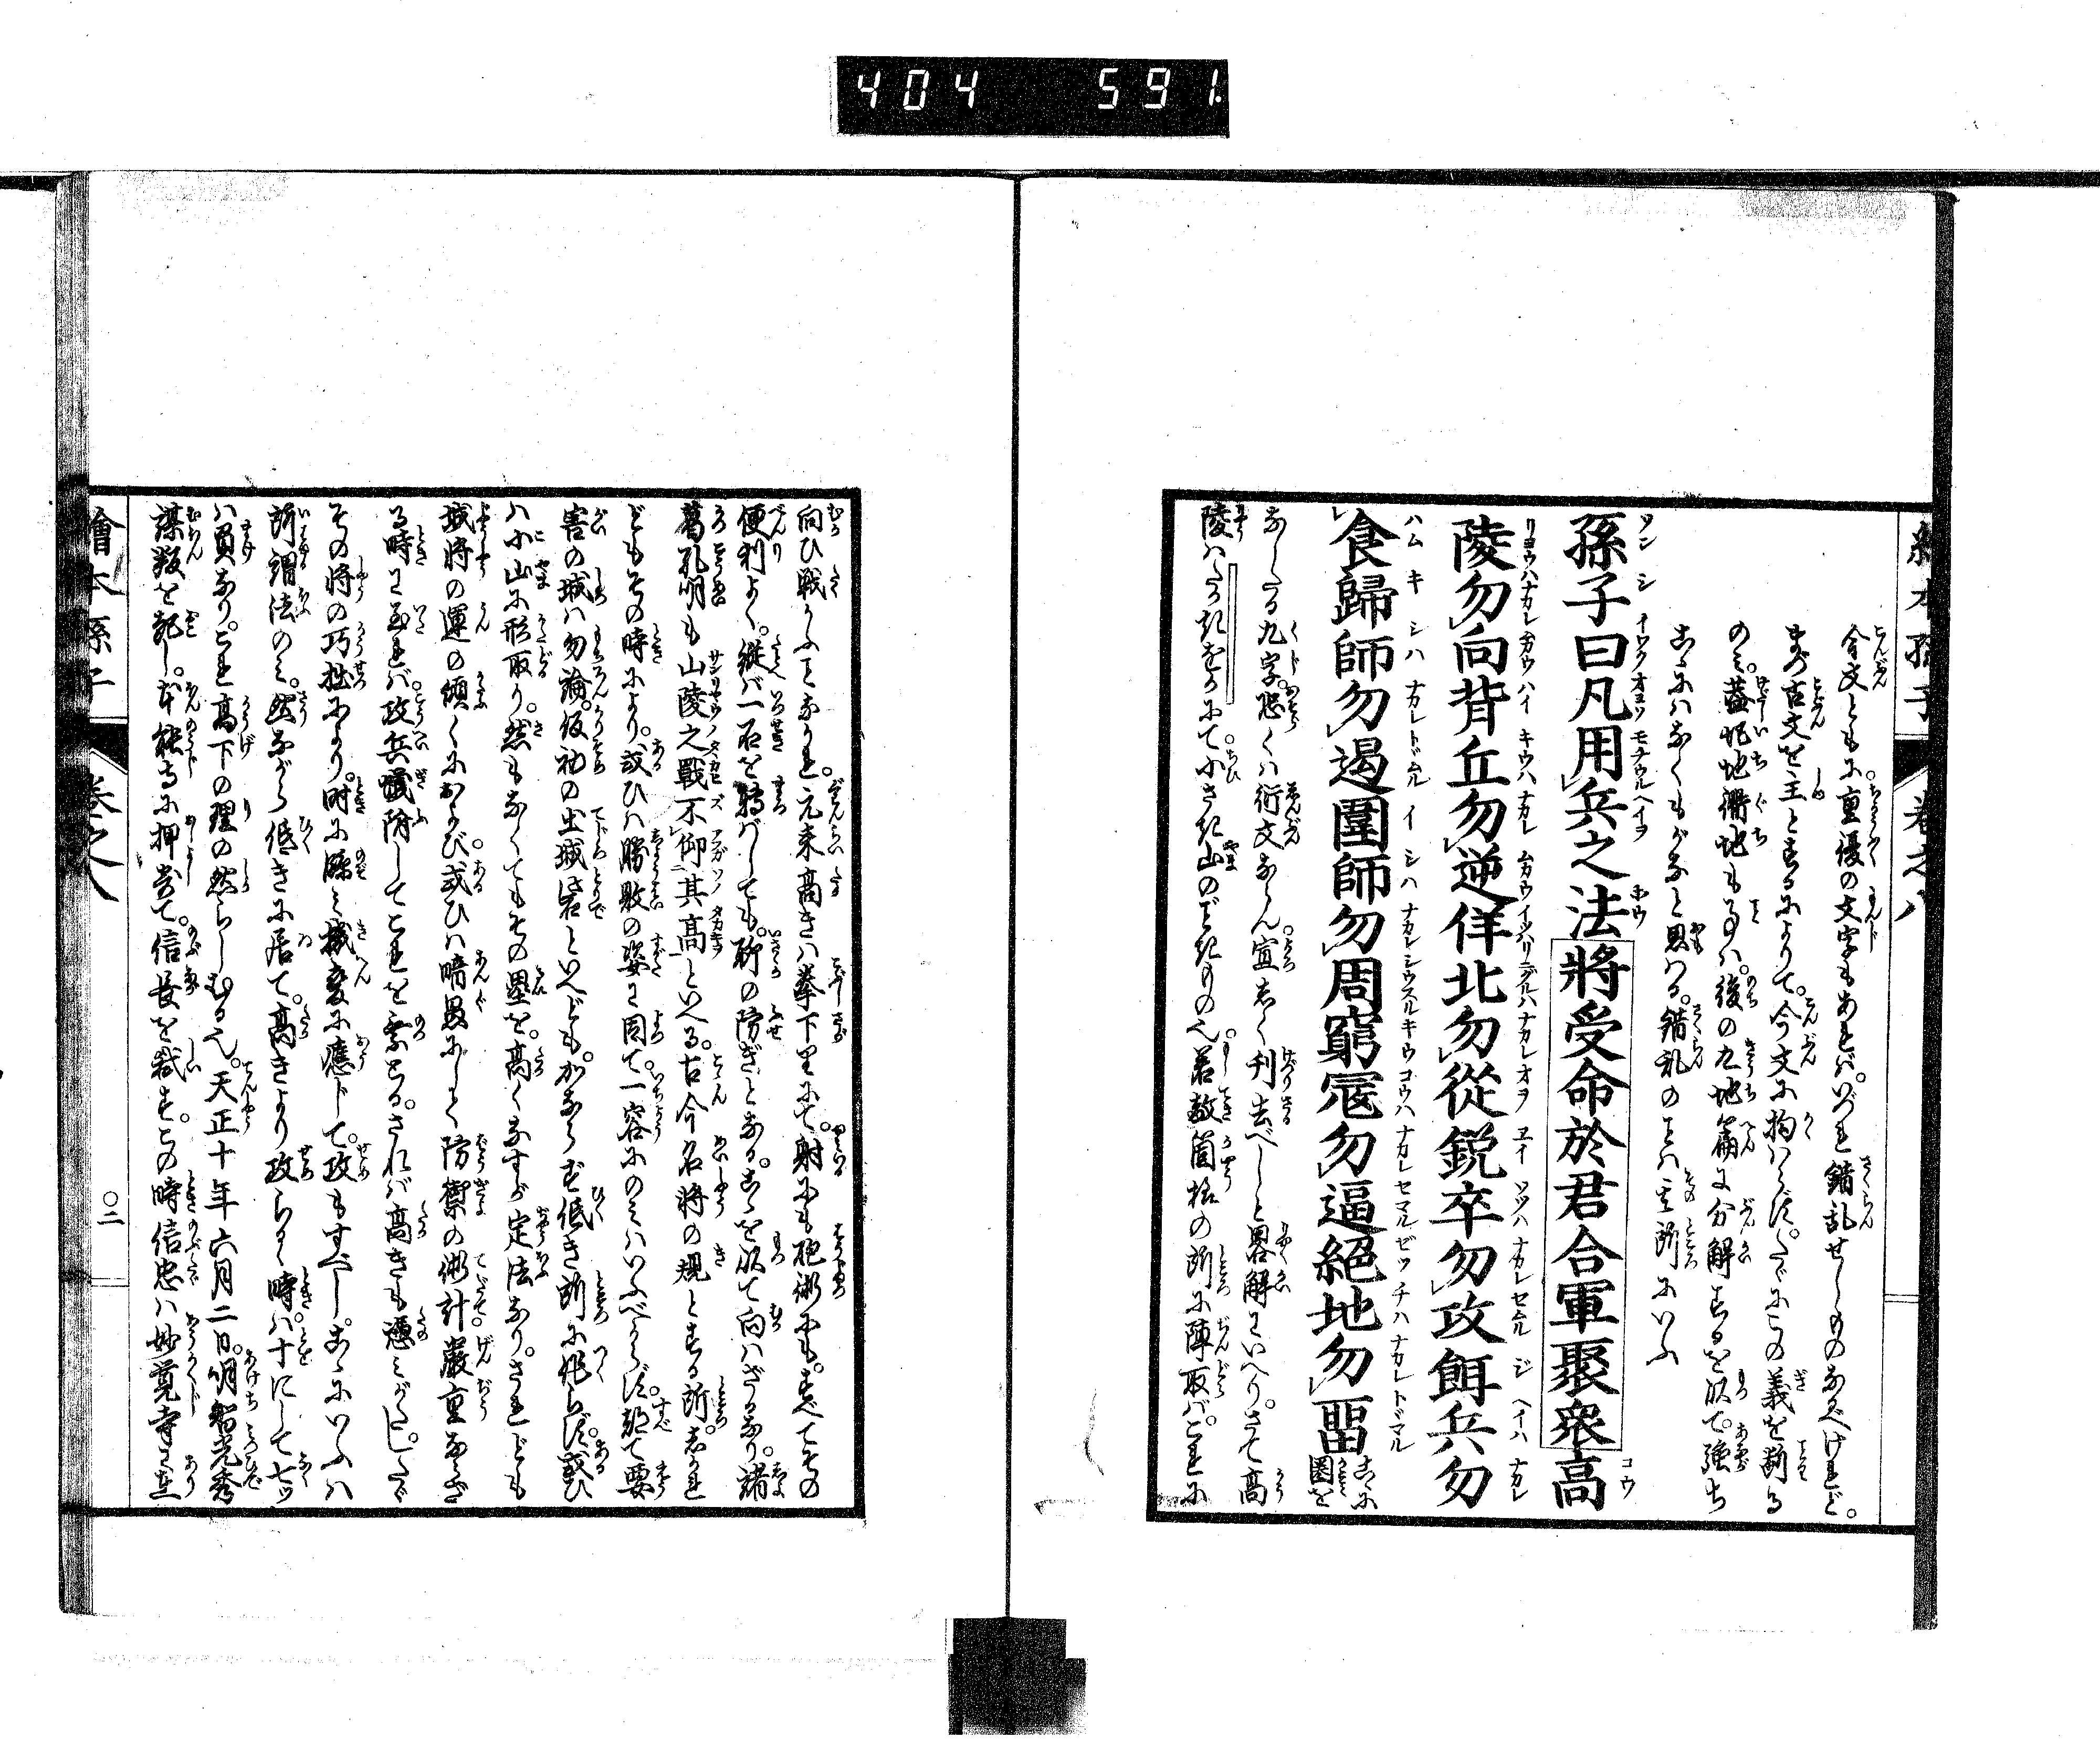 404 591
繪本孫子 卷之八
今文ともに重復の文字もあれバいづれ錯乱せしものなるべけれど。
まづ古文を主とするによりて。今文に拘ハらず。たゞにこの義を断る
のミ。蓋圯地衢地もの事ハ。後の九地篇に分解するを以て。強ち
こゝにハなくもがなと思はる。錯乱のことハ其所にいふ
孫子曰凡用兵之法將受命於君合軍聚衆高
陵勿向背丘勿逆佯北勿從銳卒勿攻餌兵勿
食歸師勿遏圍師勿周窮寇勿逼絕地勿畱
こゝに圏を
なしたる九字。恐くハ衍文ならん。宜しく刊去べしと畧解にいへり。さて高
陵ハたかきをかにて。ちひさき山のごときもの也。若敵箇様の所に陣取バ。これに
向ひ戦かふことなかれ。元来高きハ拳下りにて。射にも砲術にも。すべてその
便利よく。縦バ一石を轉バしても。聊の防ぎとなる。こゝを以て向ハざるなり。諸
葛孔明も山陵之戰不仰其高といへる。古今名將の規とする所。しかれ
どもその時により。或ひハ勝敗の姿に因て。一容にのミハいふべからず。都て要
害の城ハ勿論。仮初の出城砦といへども。かならず低き所に作らず。或ひ
ハ小山に形取り。然もなくてもその塁を。高くなすが定法なり。されども
城將の運の傾くにおよび。或ひハ暗愚にして防禦の術計。嚴重ならざ
る時に至れバ。攻兵蟻附してこれを乗とる。されバ高きも憑ミがたし。たゞ
その將の巧拙により。時に臨ミ機変に應じて。攻もすべし。こゝにいふハ
所謂法のミ。然ながら低きに居て。高きより攻らるゝ時ハ。十にして七ッ
ハ負なり。これ高下の理の然らしむる也。天正十年六月二日。明智光秀
謀叛を起し。本能寺に押寄て。信長を弑す。この時信忠ハ妙覚寺に在
繪本孫子 卷之八 〇二